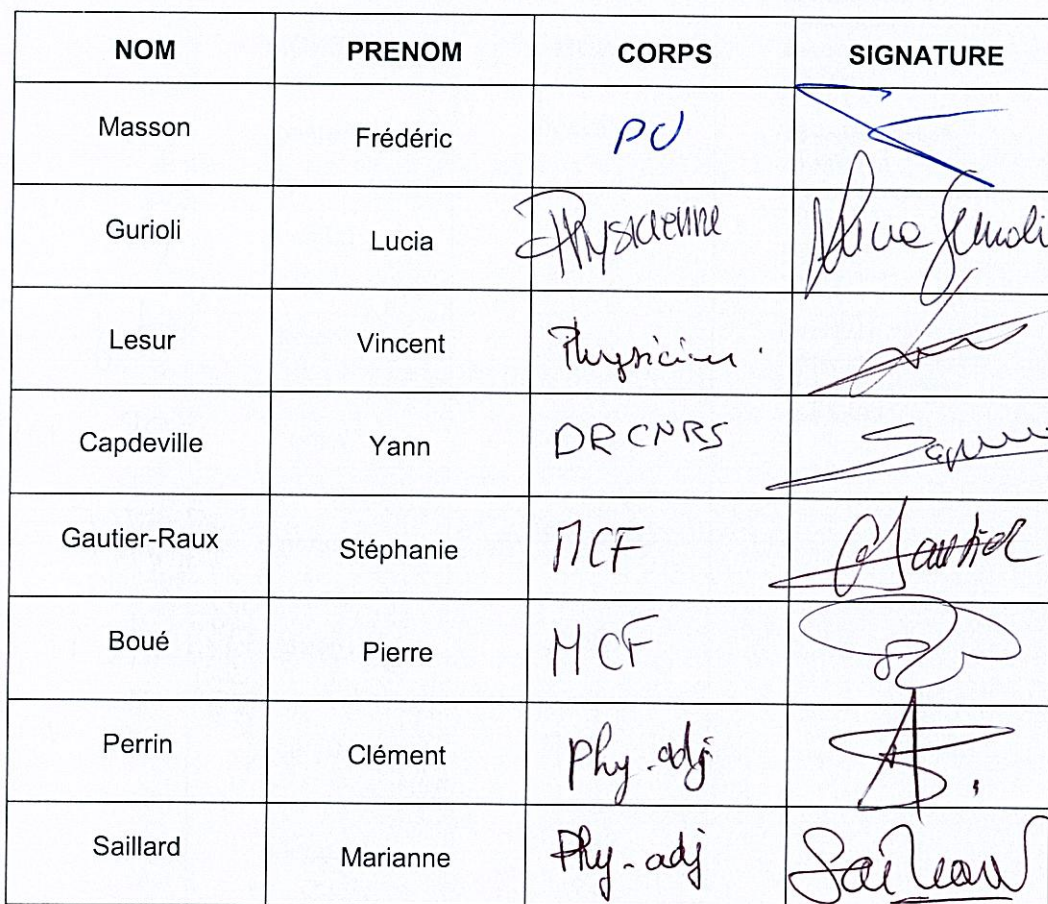 NOM PRENOM CORPS SIGNATURE
Masson Frédéric PU
Gurioli Lucia Physicienne
Lesur Vincent Physicien.
Capdeville Yann DR CNRS
Gautier-Raux Stéphanie MCF Gautier
Boué Pierre MCF
Perrin Clément Phy-adj
Saillard Marianne Phy-adj Saillard